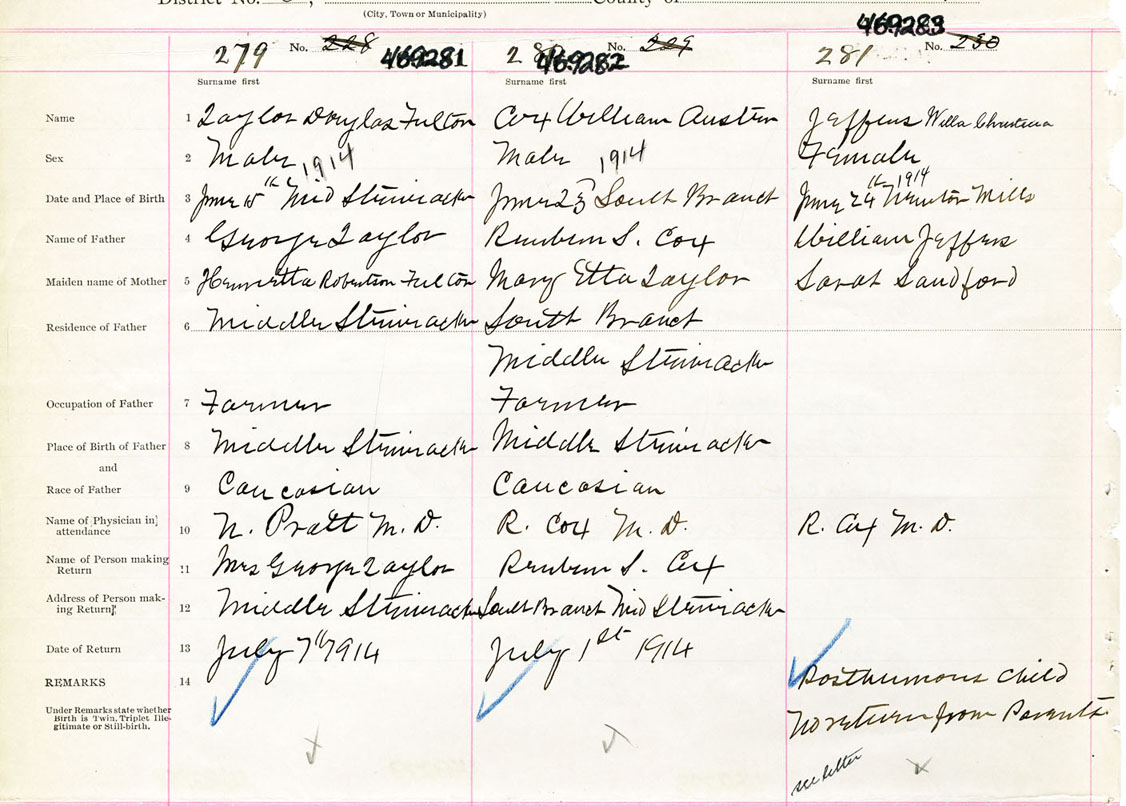 District No. County of
(City, Town or Municipality)
469283
279 No. 228 469281 280 No. 229 469282 281 No. 230
Surname first Surname first Surname first
Name 1 Taylor Douglas Fulton Cox William Austin Jeffers Willa Christina
Sex 2 Male 1914 Male 1914 Female
Date and Place of Birth 3 June 15th Mid Stewiacke June 23 South Branch June 24th 1914 Newton Mills
Name of Father 4 George Taylor Reuben S. Cox William Jeffers
Maiden name of Mother 5 Henrietta Robertson Fulton Mary Etta Taylor Sarah Sandford
Residence of Father 6 Middle Stewiacke South Branch
Middle Stewiacke
Occupation of Father 7 Farmer Farmer
Place of Birth of Father 8 Middle Stewiacke Middle Stewiacke
and
Race of Father 9 Caucasian Caucasian
Name of [Physician in]
attendance 10 N. Pratt M.D. R. Cox M.D. R. Cox M.D.
Name of Person making
Return 11 Mrs George Taylor Reuben S. Cox
Address of Person mak-
ing Return 12 Middle Stewiacke South Branch Mid Stewiacke
Date of Return 13 July 7th 1914 July 1st 1914
REMARKS 14 Posthumous Child
Under Remarks state whether
Birth is Twin, Triplet Ille-
gitimate or Still-birth.
No return from Parents
see letter